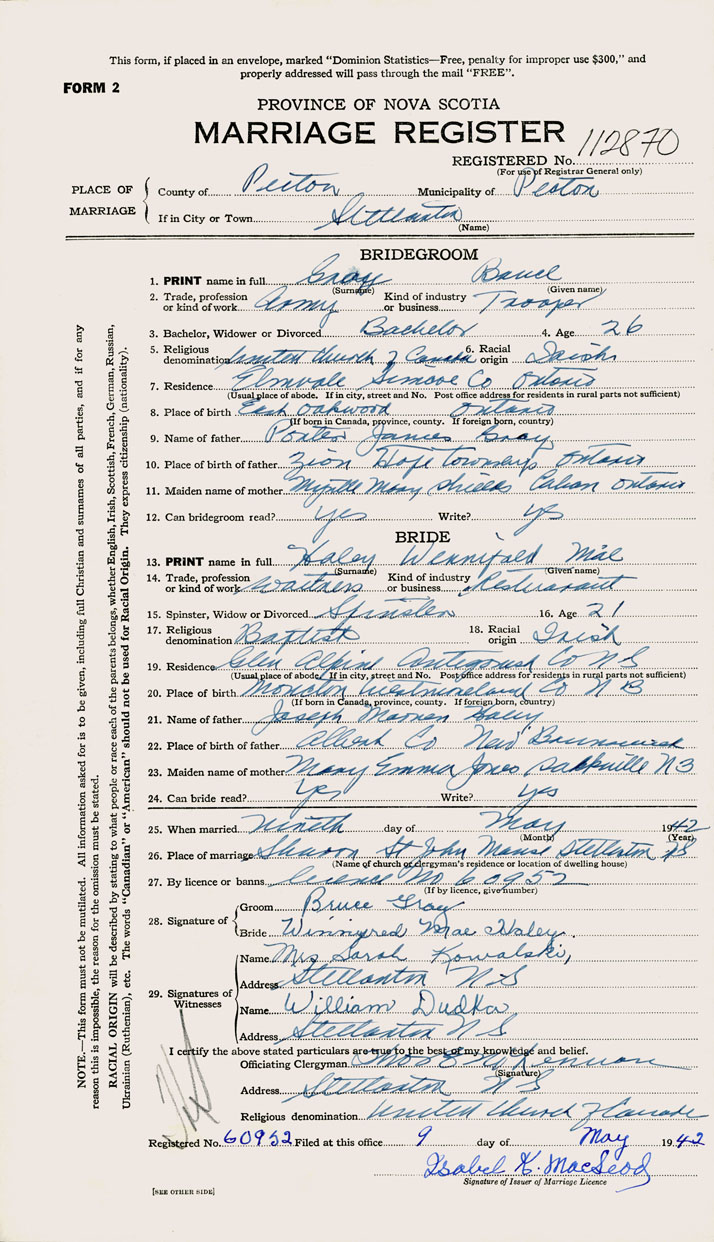 This form, if placed in an envelope, marked "Dominion Statistics—Free, penalty for improper use $300," and
properly addressed will pass through the mail "FREE".
FORM 2
PROVINCE OF NOVA SCOTIA
MARRIAGE REGISTER
REGISTERED No. 112870
(For use of Registrar General only)
PLACE OF MARRIAGE
County of Pictou Municipality of Pictou
If in City or Town Stellarton
(Name)
BRIDEGROOM
1. PRINT name in full Gray Bruce
(Surname) (Given name)
2. Trade, profession or kind of work Army Kind of industry or business Trooper
3. Bachelor, Widower or Divorced Bachelor 4. Age 26
5. Religious denomination United Church of Canada 6. Racial origin Irish
7. Residence Elmvale Simcoe Co Ontario
(Usual place of abode. If in city, street and No. Post office address for residents in rural parts not sufficient)
8. Place of birth East Oakwood Ontario
(If born in Canada, province, county. If foreign born, country)
9. Name of father Porter James Gray
10. Place of birth of father Zion Hope Township Ontario
11. Maiden name of mother Myrtle Mary Shields Ontario
12. Can bridegroom read? yes Write? yes
BRIDE
13. PRINT name in full Haley Winnifred Mae
(Surname) (Given name)
14. Trade, profession or kind of work Waitress Kind of industry or business Restuarant
15. Spinster, Widow or Divorced Spinster 16. Age 21
17. Religious denomination Baptist 18. Racial origin Irish
19. Residence Glen Alpine Antigonish Co N S
(Usual place of abode. If in city, street and No. Post office address for residents in rural parts not sufficient)
20. Place of birth Moncton Westmoreland Co N B
(If born in Canada, province, county. If foreign born, country)
21. Name of father Joseph Haley
22. Place of birth of father Albert Co New Brunswick
23. Maiden name of mother Mary Emma Jones Sackville N B
24. Can bride read? Yes Write? yes
25. When married Nineth day of May 1942
(Month) (Year)
26. Place of marriage Sharon St John Manse Stellarton NS
(Name of church or clergyman's residence or location of dwelling house)
27. By licence or banns licence No 60952
(If by licence, give number)
28. Signature of
Groom Bruce Gray
Bride Winnifred Mae Haley.
29. Signatures of Witnesses
Name Mrs Sarah Kowalski,
Address Stellarton N S
Name William Dudka
Address Stellarton N S
I certify the above stated particulars are true to the best of my knowledge and belief.
Officiating Clergyman
(Signature)
Address Stellarton N S
Religious denomination United Church of Canada
Registered No. 60952 Filed at this office 9 day of May 1942
Isabel K. MacLeod
Signature of Issuer of Marriage Licence
[SEE OTHER SIDE]
NOTE.—This form must not be mutilated. All information asked for is to be given, including full Christian and surnames of all parties, and if for any
reason this is impossible, the reason for the omission must be stated.
RACIAL ORIGIN will be described by stating to what people or race each of the parents belongs, whether English, Irish, Scottish, French, German, Russian,
Ukrainian (Ruthenian), etc. The words "Canadian" or "American" should not be used for Racial Origin. They express citizenship (nationality).